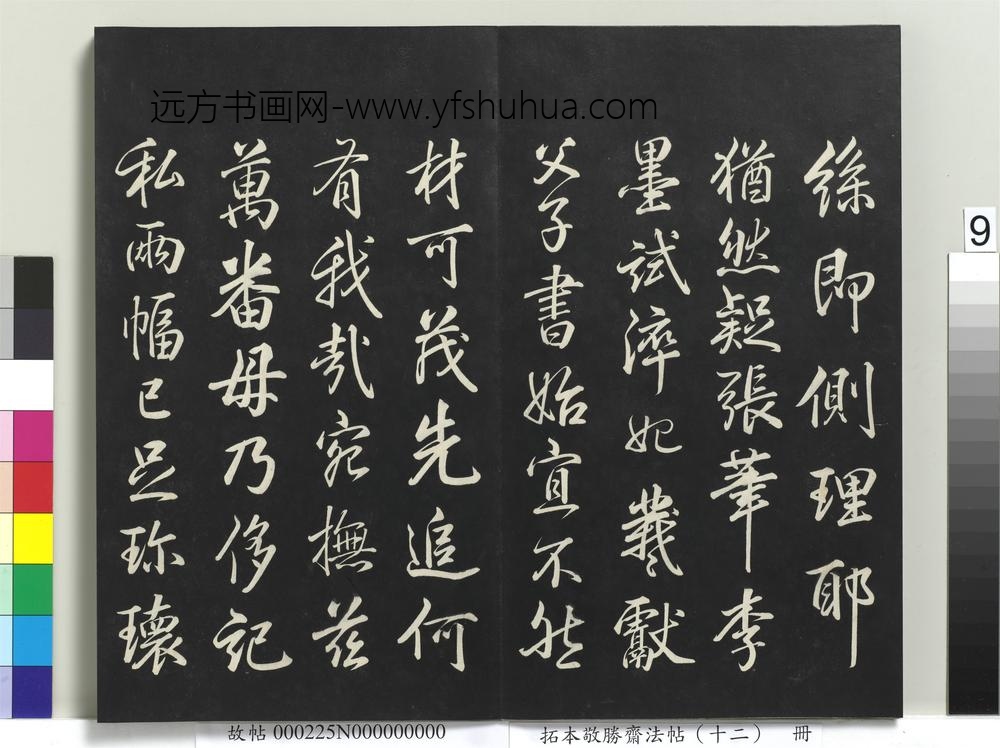 远方书画网-www.yfshuhua.com
絲即側理耶
猶然疑張華李
墨試淬妃羲獻
父子書始宜不然
材可茂先追何
有我哉宛撫茲
萬番毋乃侈記
私兩幅已足珍瓌
9
故帖 000225N000000000
拓本敬勝齋法帖（十二） 冊